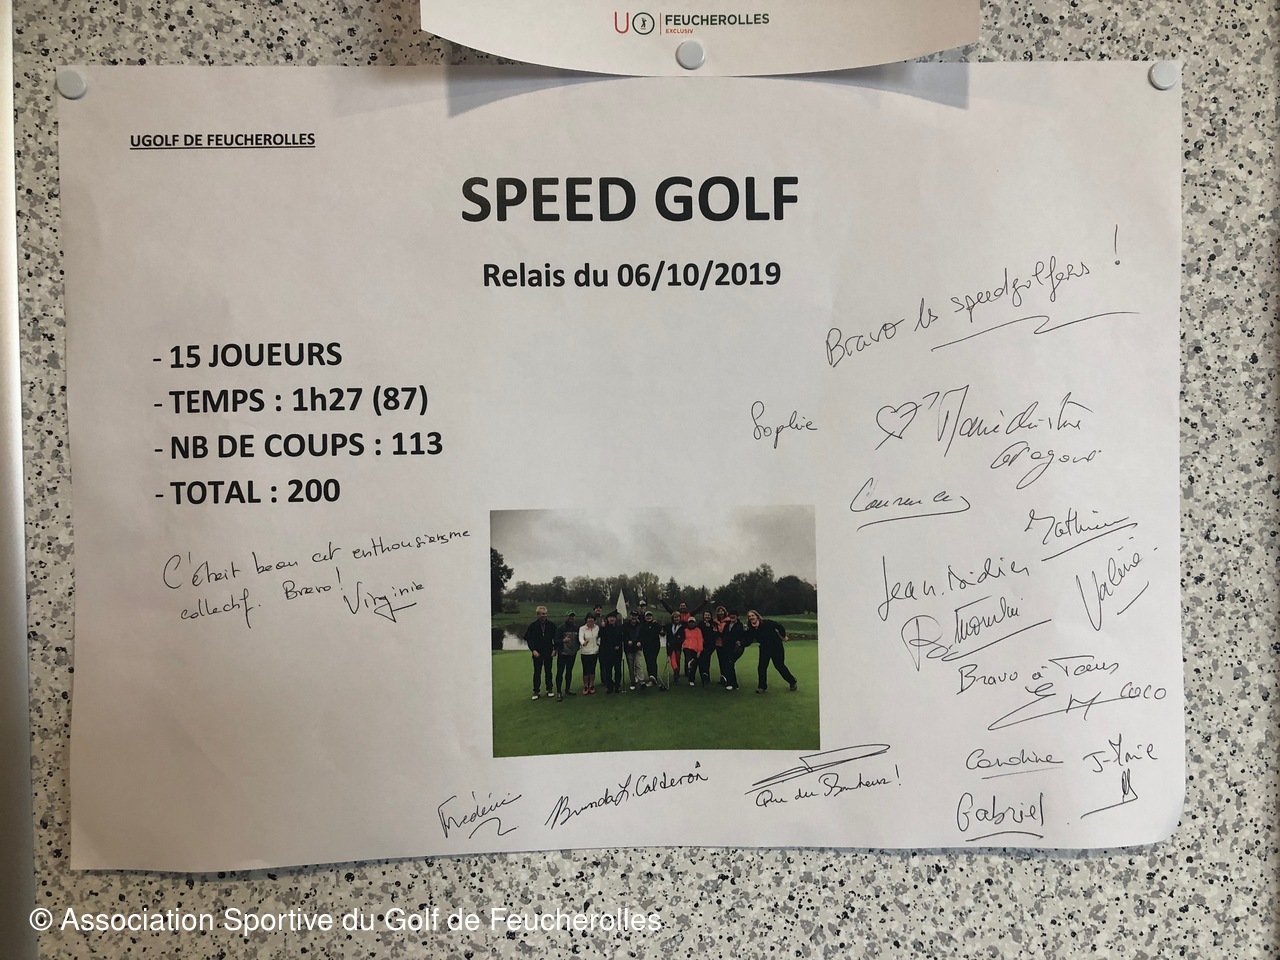 UO FEUCHEROLLES
EXCLUSIV
UGOLF DE FEUCHEROLLES
SPEED GOLF
Relais du 06/10/2019
- 15 JOUEURS
- TEMPS : 1h27 (87)
- NB DE COUPS : 113
- TOTAL : 200
Bravo les speedgolfers !
Sophie
C'était beau cet enthousiasme
collectif. Bravo! Virginie
Mathieu
Jean.Didier
Valérie
Bravo à Tous
Coco
Caroline
Gabriel
Frédéric
Brenda L. Calderón
Que du Bonheur !
© Association Sportive du Golf de Feucherolles